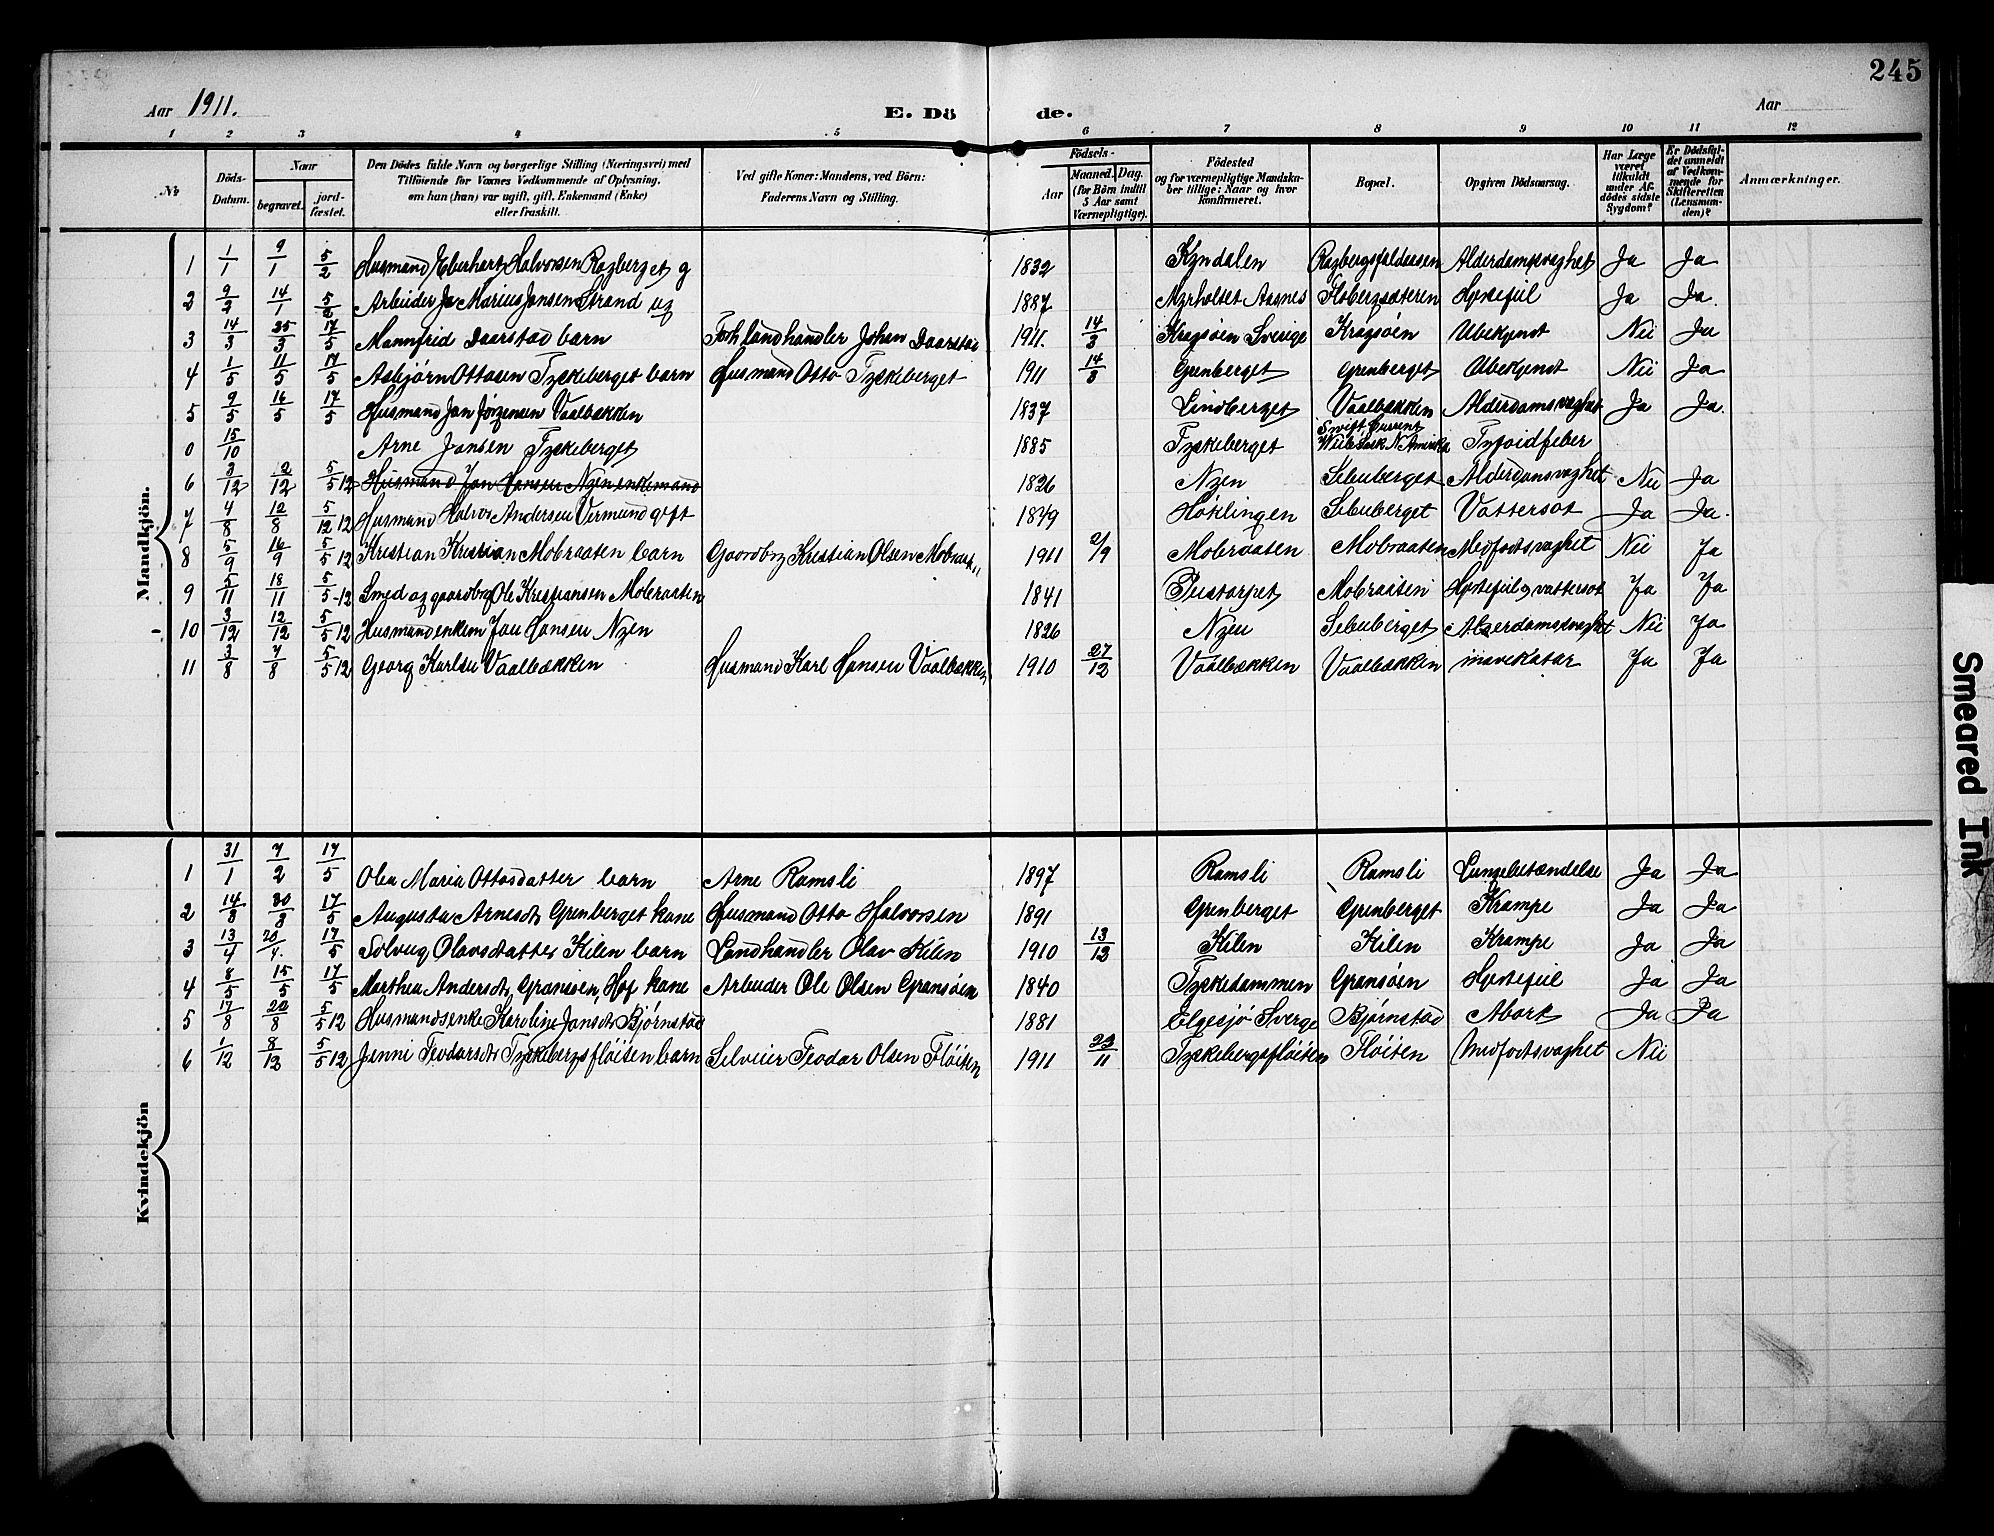 245
Aar 1911.
E. Dö de.
Aar
1 2 3 4 5 6 7 8 9 10 11 12
No
Döds-Datum.
Naar
begravet.
jord-fæstet.
Den Dödes fulde Navn og borgerlige Stilling (Næringsvei) med
Tilföiende for Voxnes Vedkommende af Oplysning,
om han (hun) var ugift, gift, Enkemand (Enke)
eller fraskilt.
Ved gifte Koner: Mandens, ved Börn:
Faderens Navn og Stilling.
Födsels-
Aar
Maaned. Dag.
(for Börn indtil
5 Aar samt
Værnepligtige).
Födested
og for værnepligtige Mandska-
ber tillige: Naar og hvor
konfirmeret.
Bopæl.
Opgiven Dödsaarsag.
Har Læge
været
tilkaldt
under Af-
dödes sidste
Sygdom?
Er Dödsfal-
det anmeldt
af Vedkom-
mende for
Skifteretten
(Lensman-
den)?
Anmærkninger.
Mandkjön.
1 1/1 9/1 5/2 Husmand Eberhart Halvorsen Ragberget g 1832 Kyndalen Ragbergsfaldensen Alderdomsvaghet Ja Ja
2 9/2 14/1 5/2 Arbeider Marius Jansen Strand ug 1887 Myrholtet Aasnes Hobergsæteren Hjertefeil Ja Ja.
3 14/3 25/3 17/5 Mannfrid Daarstad barn Forh landhandler Johan Daarstad 1911. 14/3 Kragsøen Sverige Kragsøen Ubekjendt Nei Ja
4 1/5 11/5 17/5 Asbjørn Ottosen Tyskeberget barn Husmand Otto Tyskeberget 1911 14/3 Grenberget Grenberget Ubekjendt Nei Ja
5 9/5 16/5 17/5 Husmand Jan Jørgensen Vaalbækken 1837 Lindberget Vaalbækken Alderdomsvaghet Ja Ja.
0 15/10 Arne Jansen Tyskeberget 1885 Tyskeberget Swift Current N Amerika Tyfoidfeber
6 3/12 2/12 5/5 12 Husmand Jan Hansen Nyen enkemand 1826 Nyen Sebuberget Alderdomsvaghet Nei Ja
7 4/8 12/8 5/12 12 Husmand Halvor Andersen Vermund gift 1849 Høklingen Sebuberget Vattersot Ja Ja.
8 5/9 16/9 5/5 12 Kristian Kristian Mobraaten barn Gaardbrg Kristian Olsen Mobraaten 1911 2/9 Mobraaten Mobraaten Medfødtsvaghet Nei Ja
9 5/11 18/11 5/5-12 Smed og gaardbrg Ole Kristiansen Mobraaten 1841 Pustorpet Mobraaten Hjertefeil og vattersot Ja Ja
10 3/12 12/12 5/5 12 Husmand enkem Jan Hansen Nyen 1826 Nyen Sebuberget Alderdomsvaghet Nei Ja
11 3/8 7/8 5/5 12 Georg Karlsen Vaalbækken Husmand Karl Hansen Vaalbækken 1910 27/12 Vaalbækken Vaalbækken mavekatar Ja Ja
Kvindekjön
1 31/1 7/2 17/5 Olea Maria Ottosdatter barn Arne Ramsli 1897 Ramsli Ramsli Lungebetændelse Ja Ja
2 14/3 20/3 17/5 Augusta Arnesdt Grenberget kone Husmand Otto Halvorsen 1891 Grenberget Grenberget Krampe Ja Ja
3 13/4 20/4. 17/5 Solveig Olavsdatter Kilen barn Landhandler Olav Kilen 1910 13/12 Kilen Kilen Krampe Ja Ja
4 8/5 15/5 17/5 Marthea Andersdt Gransøen, Hof kone Arbeider Ole Olsen Gransøen 1840 Tyskedammen Gransøen Hjertefeil Ja Ja
5 17/8 20/8 5/5 12 Husmandsenke Karoline Jansdt Bjørnstad 1881 Elgesjø Sverge Bjørnstad Abort Ja Ja
6 1/12 8/12 5/5 12 Jenni Teodorsdt Tyskebergsfløiten barn Selveier Teodor Olsen Fløiten 1911 23/11 Tyskebergsfløiten Fløiten Medfødtsvaghet Nei
Smeared Ink